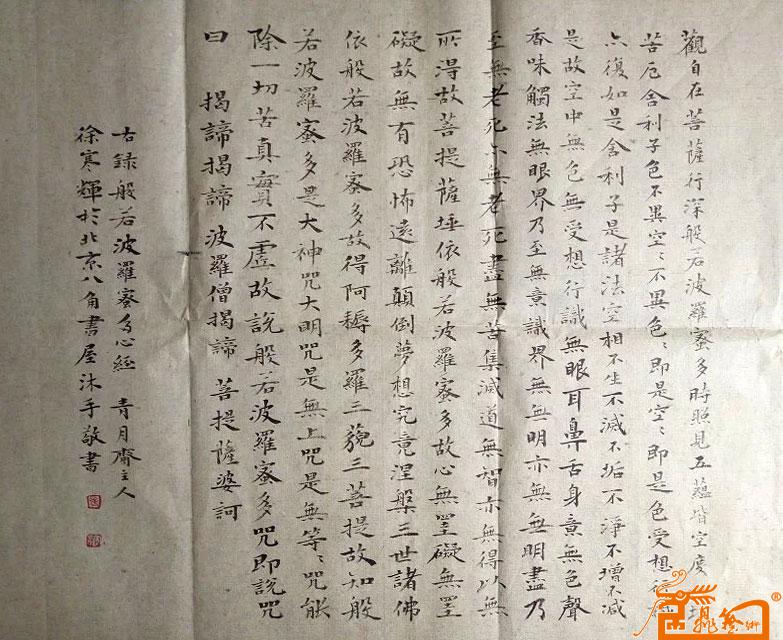 觀自在菩薩行深般若波羅蜜多時照見五蘊皆空度一切
苦厄舍利子色不異空〻不異色〻即是空〻即是色受想行識
亦復如是舍利子是諸法空相不生不滅不垢不淨不增不減
是故空中無色無受想行識無眼耳鼻舌身意無色聲
香味觸法無眼界乃至無意識界無無明亦無無明盡乃
至無老死亦無老死盡無苦集滅道無智亦無得以無
所得故菩提薩埵依般若波羅蜜多故心無罣礙無罣
礙故無有恐怖遠離顛倒夢想究竟涅槃三世諸佛
依般若波羅蜜多故得阿耨多羅三藐三菩提故知般
若波羅蜜多是大神咒大明咒是無上咒是無等〻咒能
除一切苦真實不虛故說般若波羅蜜多咒即說咒
曰 揭諦揭諦 波羅僧揭諦 菩提薩婆訶
右録般若波羅蜜多心經 青月齋主人
徐寒輝於北京八角書屋沐手敬書